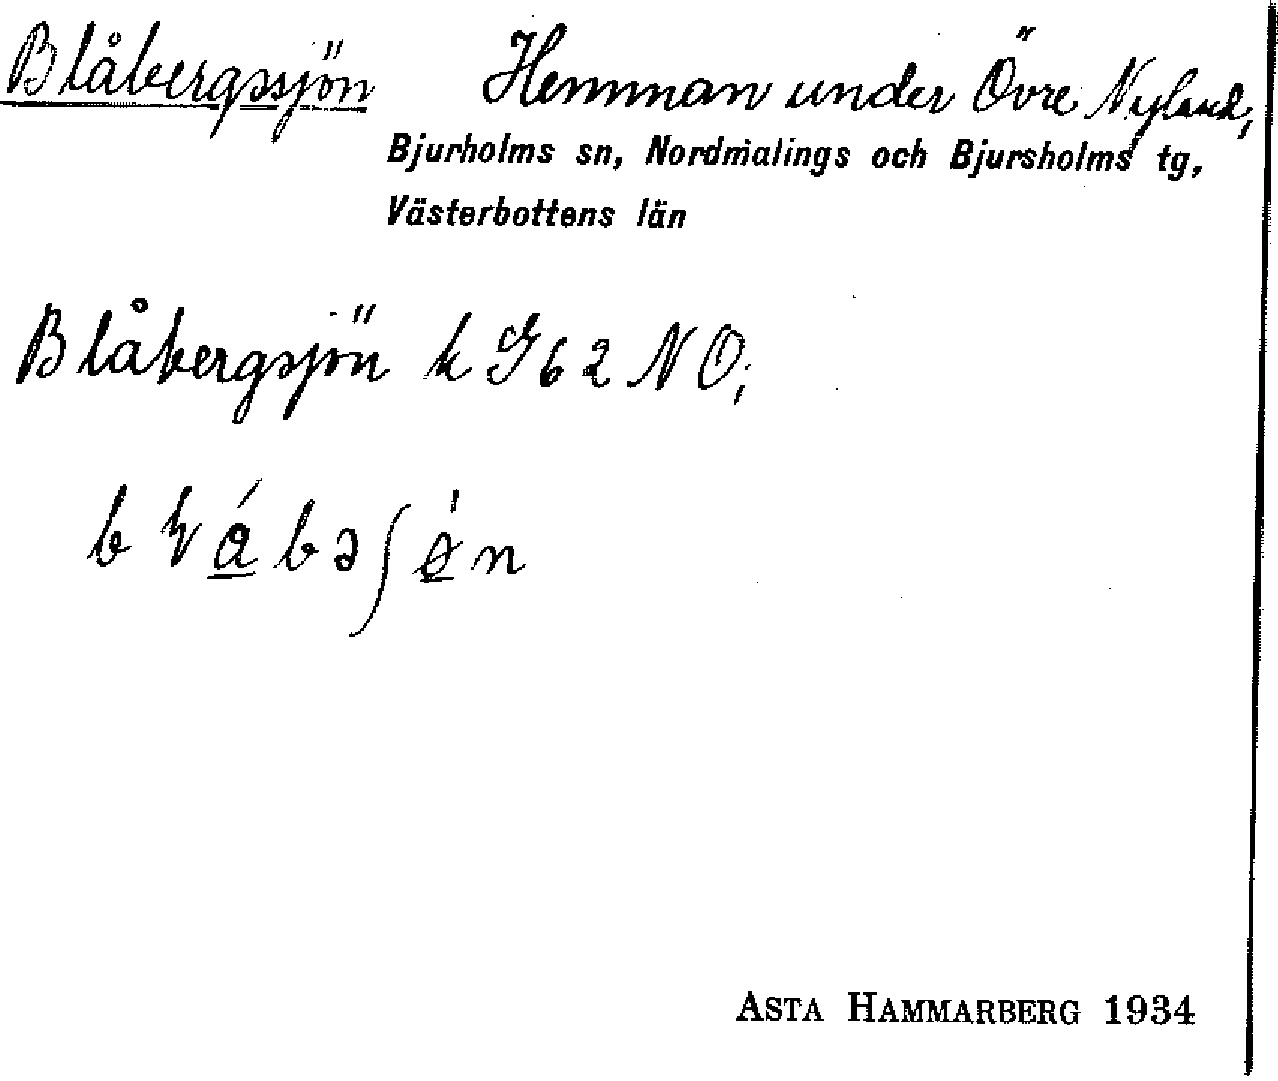 Blåbergssjön Hemman under Övre Nyland,
Bjurholms sn, Nordmalings och Bjursholms tg,
Västerbottens län
Blåbergsjön k G 62 NO;
ASTA HAMMARBERG 1934